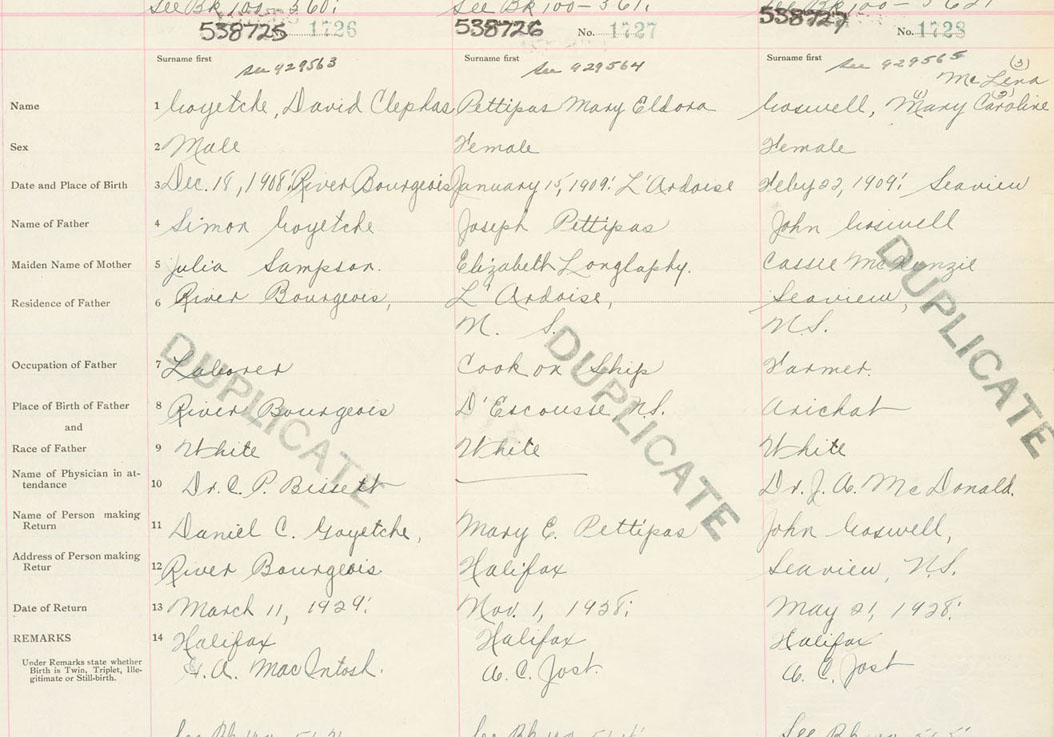 See Bk 100 - 360.
See Bk 100 - 361.
See Bk 100 - 362.
538725 1726
538726 No. 1727
538727 No. 1728
Surname first
Surname first
Surname first
see 929563
see 929564
see 929565
(3)
McLena
Name 1 Goyetche, David Clephas Pettipas Mary Eldora Goswell, Mary Caroline
(1) (2)
Sex 2 Male Female Female
Date and Place of Birth 3 Dec. 18, 1908. River Bourgeois January 15, 1909. L'Ardoise Feby 22, 1909. Seaview
Name of Father 4 Simon Goyetche Joseph Pettipas John Goswell
Maiden Name of Mother 5 Julia Sampson. Elizabeth Longlaphy. Cassie McKenzie
Residence of Father 6 River Bourgeois, L'Ardoise, Seaview,
N. S. N.S.
DUPLICATE
DUPLICATE
DUPLICATE
Occupation of Father 7 Laborer Cook on Ship Farmer.
Place of Birth of Father 8 River Bourgeois D'Escousse N.S. Arichat
and
Race of Father 9 White White White
Name of Physician in at-
tendance 10 Dr. C. P. Bissett Dr. J. A. McDonald.
Name of Person making
Return 11 Daniel C. Goyetche, Mary E. Pettipas John Goswell,
Address of Person making
Retur 12 River Bourgeois Halifax Seaview, N.S.
Date of Return 13 March 11, 1929. Nov. 1, 1928. May 21, 1928.
REMARKS 14 Halifax Halifax Halifax
Under Remarks state whether
Birth is Twin, Triplet, Ille-
gitimate or Still-birth.
A. MacIntosh. A. C. Jost. A. C. Jost
See Bk
See Bk
See Bk